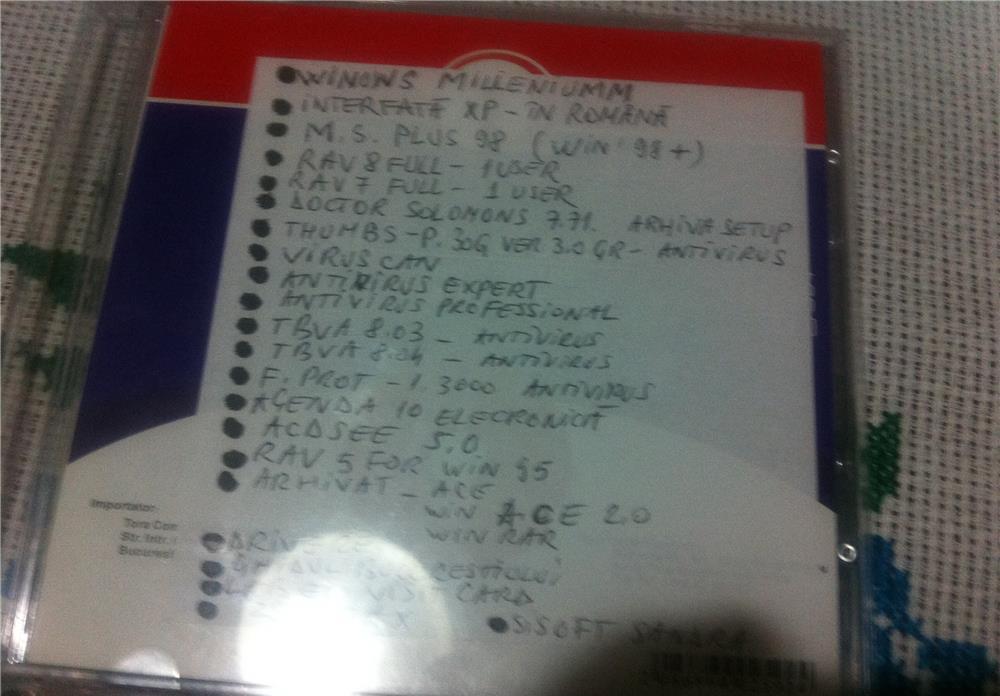 WINOWS MILLENIUMM
INTERFAȚĂ XP - ÎN ROMÂNĂ
M.S. PLUS 98 (WIN' 98+)
RAV 8 FULL - 1 USER
RAV 7 FULL - 1 USER
DOCTOR SOLOMONS 7.71. ARHIVA SETUP
THUMBS-P. 30G VER 3.0 GR - ANTIVIRUS
VIRUS CAN
ANTIVIRUS EXPERT
ANTIVIRUS PROFESSIONAL
TBVA 8.03 - ANTIVIRUS
TBVA 8.04 - ANTIVIRUS
F. PROT - 1. 3000 ANTIVIRUS
AGENDA 10 ELECRONICĂ
ACDSEE 5.0.
RAV 5 FOR WIN 95
ARHIVAT - ACE
WIN ACE 2.0
WIN RAR
VISIT CARD
SISOFT SANDRA
Importator:
Tora Con
Str. Intr.
Bucuresti